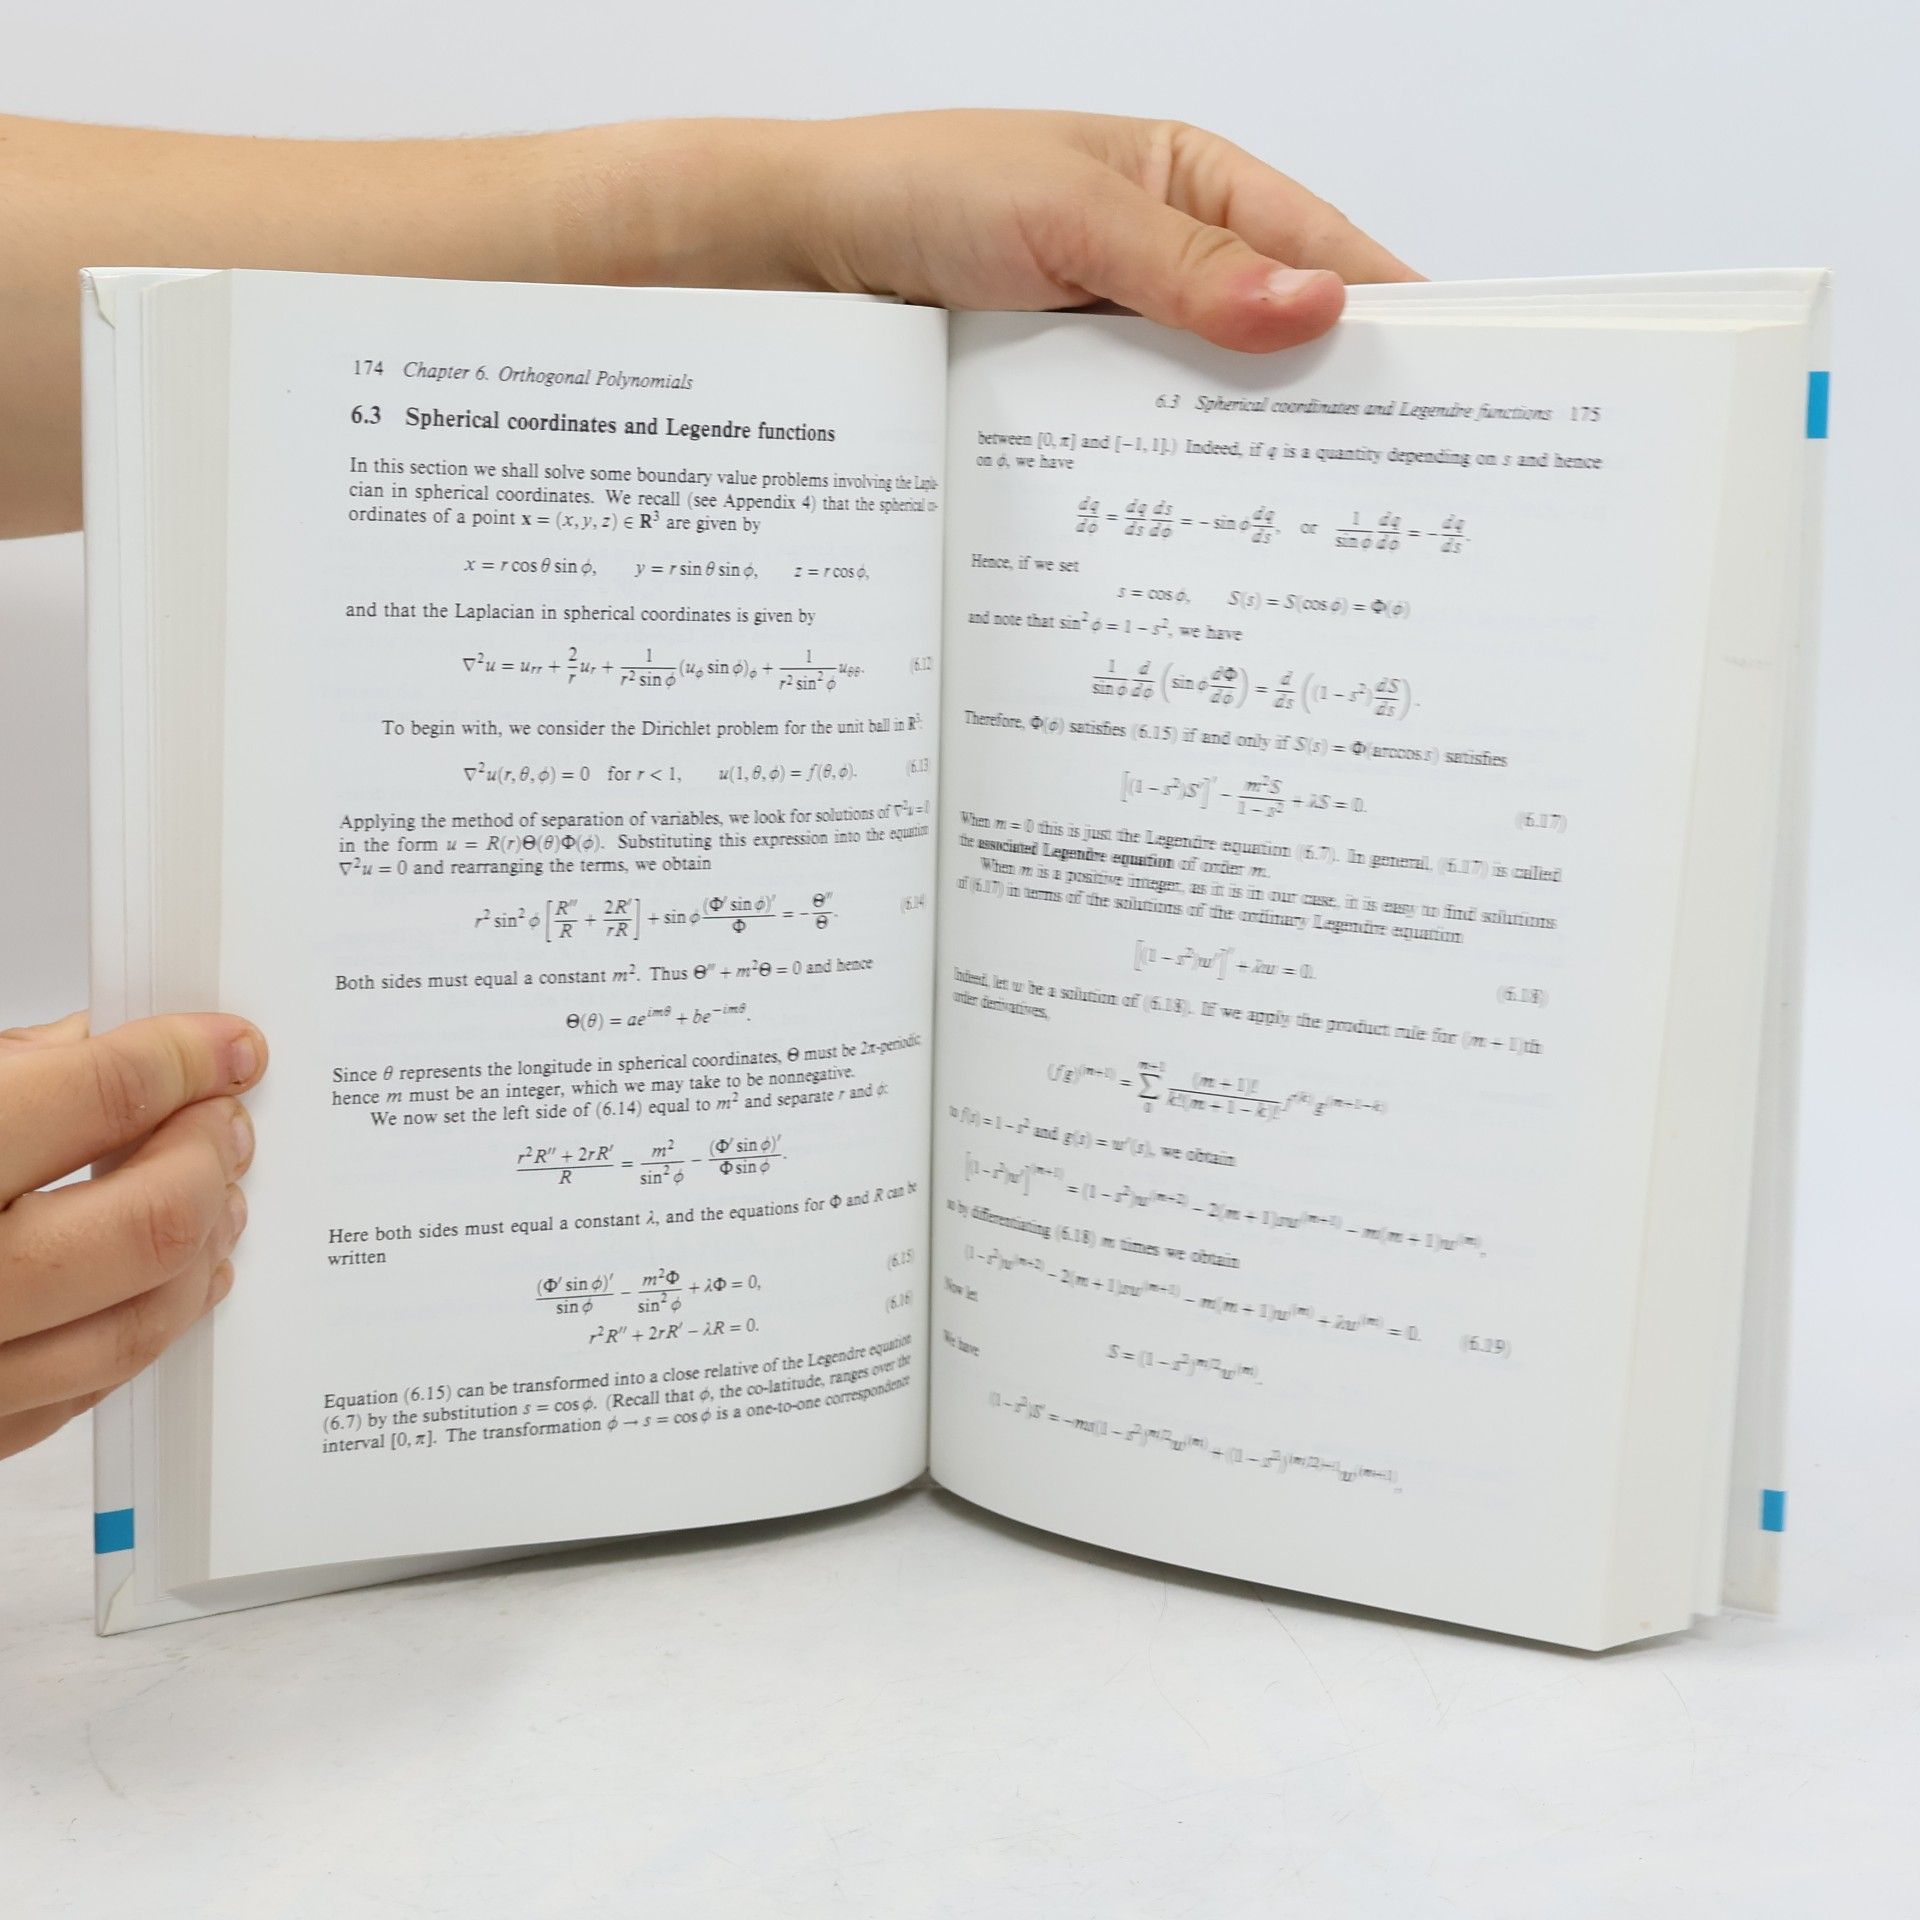 174 Chapter 6. Orthogonal Polynomials
6.3 Spherical coordinates and Legendre functions
In this section we shall solve some boundary value problems involving the Lapla-
cian in spherical coordinates. We recall (see Appendix 4) that the spherical co-
ordinates of a point x = (x, y, z) ∈ R³ are given by
x = r cos θ sin ϕ, y = r sin θ sin ϕ, z = r cos ϕ,
and that the Laplacian in spherical coordinates is given by
∇²u = u_rr + (2/r)u_r + (1/(r² sin ϕ))(u_ϕ sin ϕ)_ϕ + (1/(r² sin² ϕ))u_θθ. (6.12)
To begin with, we consider the Dirichlet problem for the unit ball in R³:
∇²u(r, θ, ϕ) = 0 for r < 1, u(1, θ, ϕ) = f(θ, ϕ). (6.13)
Applying the method of separation of variables, we look for solutions of ∇²u = 0
in the form u = R(r)Θ(θ)Φ(ϕ). Substituting this expression into the equation
∇²u = 0 and rearranging the terms, we obtain
r² sin² ϕ [R″/R + 2R′/(rR)] + sin ϕ (Φ′ sin ϕ)′/Φ = −Θ″/Θ. (6.14)
Both sides must equal a constant m². Thus Θ″ + m²Θ = 0 and hence
Θ(θ) = ae^{imθ} + be^{−imθ}.
Since θ represents the longitude in spherical coordinates, Θ must be 2π-periodic;
hence m must be an integer, which we may take to be nonnegative.
We now set the left side of (6.14) equal to m² and separate r and ϕ:
(r²R″ + 2rR′)/R = m²/sin² ϕ − (Φ′ sin ϕ)′/(Φ sin ϕ).
Here both sides must equal a constant λ, and the equations for Φ and R can be
written
(Φ′ sin ϕ)′/sin ϕ − m²Φ/sin² ϕ + λΦ = 0, (6.15)
r²R″ + 2rR′ − λR = 0. (6.16)
Equation (6.15) can be transformed into a close relative of the Legendre equation
(6.7) by the substitution s = cos ϕ. (Recall that ϕ, the co-latitude, ranges over the
interval [0, π]. The transformation ϕ → s = cos ϕ is a one-to-one correspondence
6.3 Spherical coordinates and Legendre functions 175
between [0, π] and [−1, 1].) Indeed, if q is a quantity depending on s and hence
on ϕ, we have
dq/dϕ = (dq/ds)(ds/dϕ) = −sin ϕ dq/ds, or (1/sin ϕ) dq/dϕ = −dq/ds.
Hence, if we set
s = cos ϕ, S(s) = S(cos ϕ) = Φ(ϕ)
and note that sin² ϕ = 1 − s², we have
(1/sin ϕ) d/dϕ (sin ϕ dΦ/dϕ) = d/ds ((1 − s²) dS/ds).
Therefore, Φ(ϕ) satisfies (6.15) if and only if S(s) = Φ(arccos s) satisfies
[(1 − s²)S′]′ − m²S/(1 − s²) + λS = 0. (6.17)
When m = 0 this is just the Legendre equation (6.7). In general, (6.17) is called
the associated Legendre equation of order m.
When m is a positive integer, as it is in our case, it is easy to find solutions
of (6.17) in terms of the solutions of the ordinary Legendre equation
[(1 − s²)w′]′ + λw = 0. (6.18)
Indeed, let w be a solution of (6.18). If we apply the product rule for (m + 1)th
order derivatives,
(fg)^{(m+1)} = Σ_0^{m+1} (m + 1)!/(k!(m + 1 − k)!) f^{(k)} g^{(m+1−k)}
to f(s) = 1 − s² and g(s) = w′(s), we obtain
[(1 − s²)w′]^{(m+1)} = (1 − s²)w^{(m+2)} − 2(m + 1)sw^{(m+1)} − m(m + 1)w^{(m)},
so by differentiating (6.18) m times we obtain
(1 − s²)w^{(m+2)} − 2(m + 1)sw^{(m+1)} − m(m + 1)w^{(m)} + λw^{(m)} = 0. (6.19)
Now let
S = (1 − s²)^{m/2}w^{(m)}.
We have
(1 − s²)S′ = −ms(1 − s²)^{m/2}w^{(m)} + (1 − s²)^{(m/2)+1}w^{(m+1)},